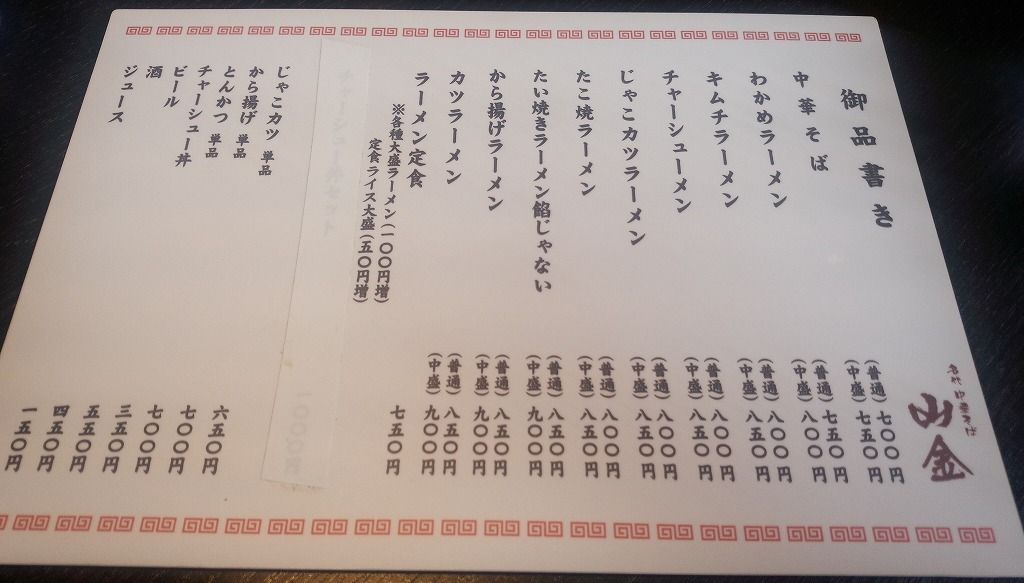 御品書き
名代中華そば
山金
中華そば (普通) 七〇〇円
(中盛) 七五〇円
わかめラーメン (普通) 七五〇円
(中盛) 八〇〇円
キムチラーメン (普通) 八〇〇円
(中盛) 八五〇円
チャーシューメン (普通) 八〇〇円
(中盛) 八五〇円
じゃこカツラーメン (普通) 八〇〇円
(中盛) 八五〇円
たこ焼ラーメン (普通) 八〇〇円
(中盛) 八五〇円
たい焼きラーメン餡じゃない (普通) 八五〇円
(中盛) 九〇〇円
から揚げラーメン (普通) 八五〇円
(中盛) 九〇〇円
カツラーメン (普通) 八五〇円
(中盛) 九〇〇円
ラーメン定食 七五〇円
※各種大盛ラーメン(一〇〇円増)
定食ライス大盛(五〇円増)
チャーシュー丼セット 一〇〇〇円
じゃこカツ 単品 六五〇円
から揚げ 単品 七〇〇円
とんかつ 単品 七〇〇円
チャーシュー丼 三五〇円
ビール 五五〇円
酒 四五〇円
ジュース 一五〇円